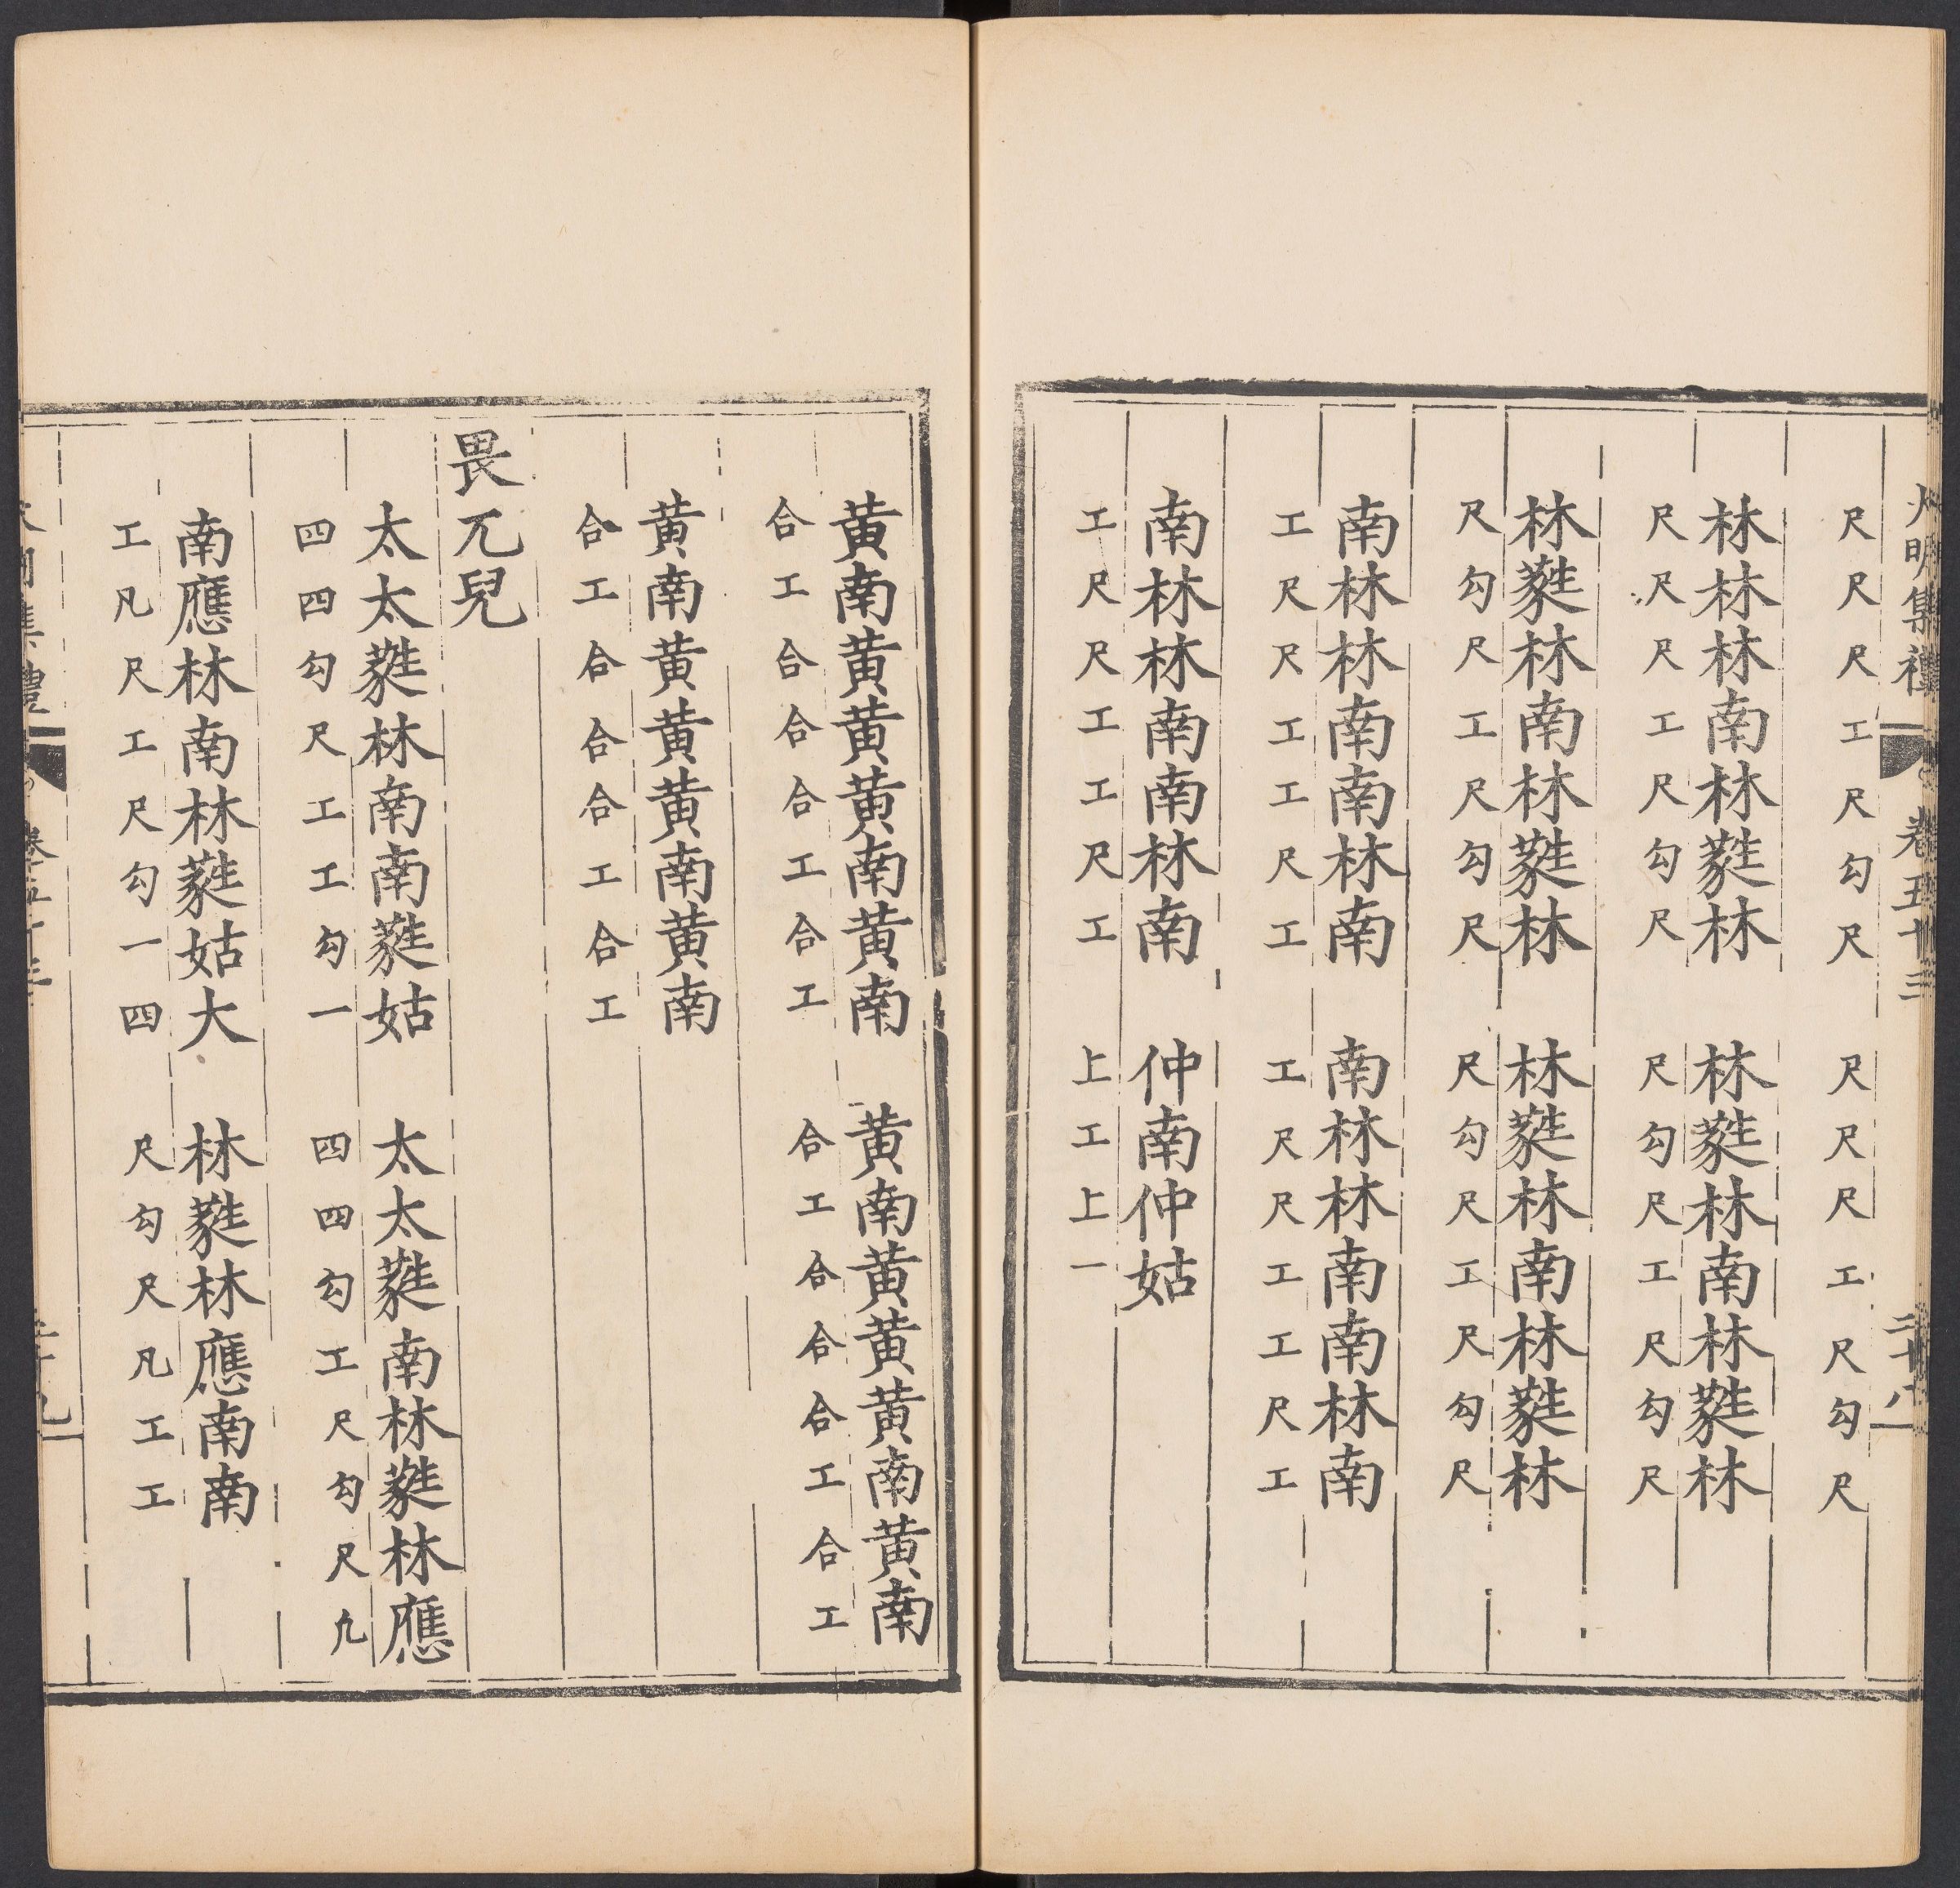 大明集禮 卷五十三 二十八
尺尺尺工尺勾尺 尺尺尺工尺勾尺
林林林南林蕤林 林蕤林南林蕤林
尺尺尺工尺勾尺 尺勾尺工尺勾尺
林蕤林南林蕤林 林蕤林南林蕤林
尺勾尺工尺勾尺 尺勾尺工尺勾尺
南林林南南林南 南林林南南林南
工尺尺工工尺工 工尺尺工工尺工
南林林南南林南 仲南仲姑
工尺尺工工尺工 上工上一
黃南黃黃黃南黃南 黃南黃黃黃南黃南
合工合合合工合工 合工合合合工合工
黃南黃黃黃南黃南
合工合合合工合工
畏兀兒
太太蕤林南南蕤姑 太太蕤南林蕤林應
四四勾尺工工勾一 四四勾工尺勾尺凢
南應林南林蕤姑大 林蕤林應南南
工凡尺工尺勾一四 尺勾尺凡工工
集禮 卷五十三